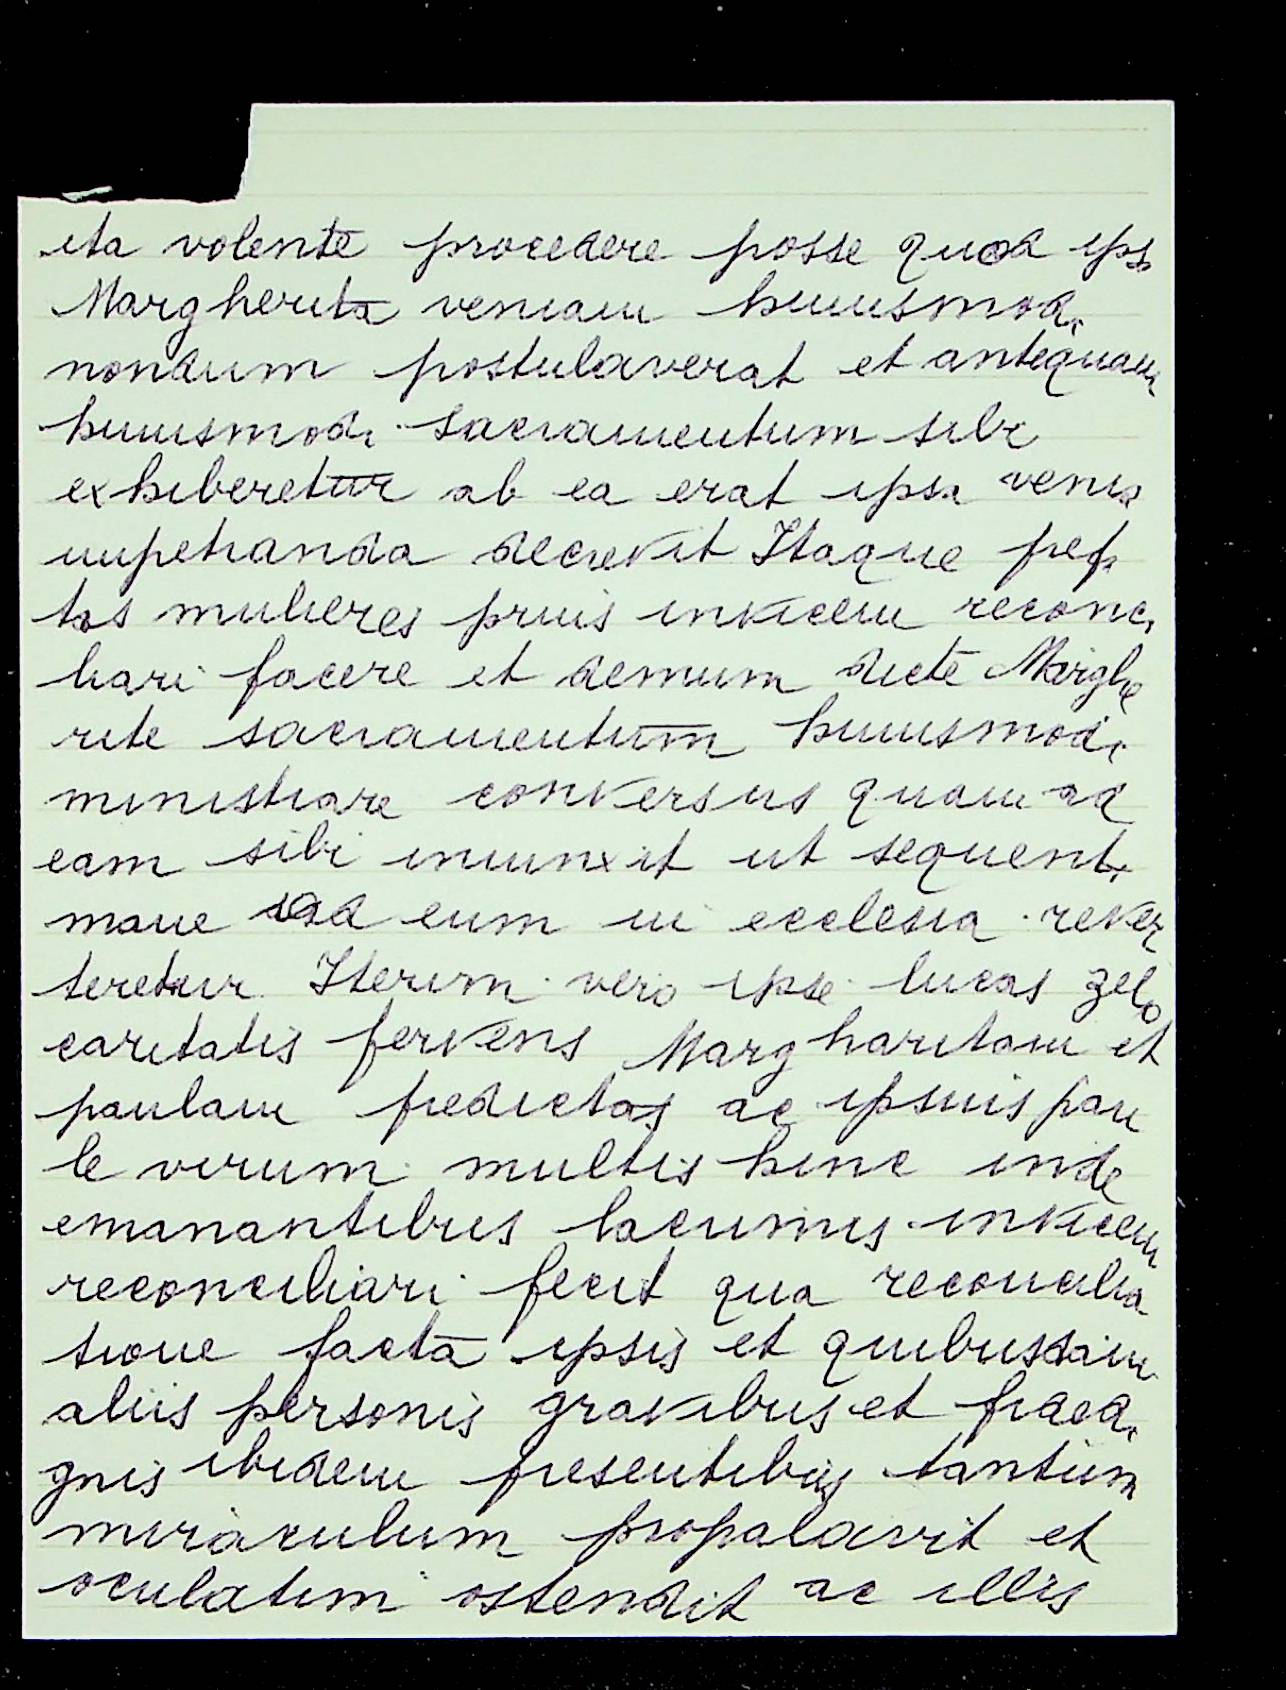 ita volente procedere posse quod ips
Margherita veniam huiusmod.
nondum postulaverat et antequam
huiusmodi sacramentum sibi
exhiberetur ab ea erat ipsa venia
impetranda decrevit Itaque pref
tas mulieres prius invicem reconc.
liari facere et demum dicte Marghe
rite sacramentum huiusmodi
ministrare conversus quam ad
eam sibi iniunxit ut sequent.
mane ad eum in ecclesia rever
teretur. Iterim vero ipse lucas zelo
caritatis fervens Margharitam et
paulam predictas ac ipsius pau
le virum multis hinc inde
emanantibus lacrimis invicem
reconciliari fecit qua reconcilia
tione facta ipsis et quibusdam
aliis personis gravibus et fraed.
gnis ibidem presentibus tantum
miraculum propalavit et
oculatim ostendit ac illis